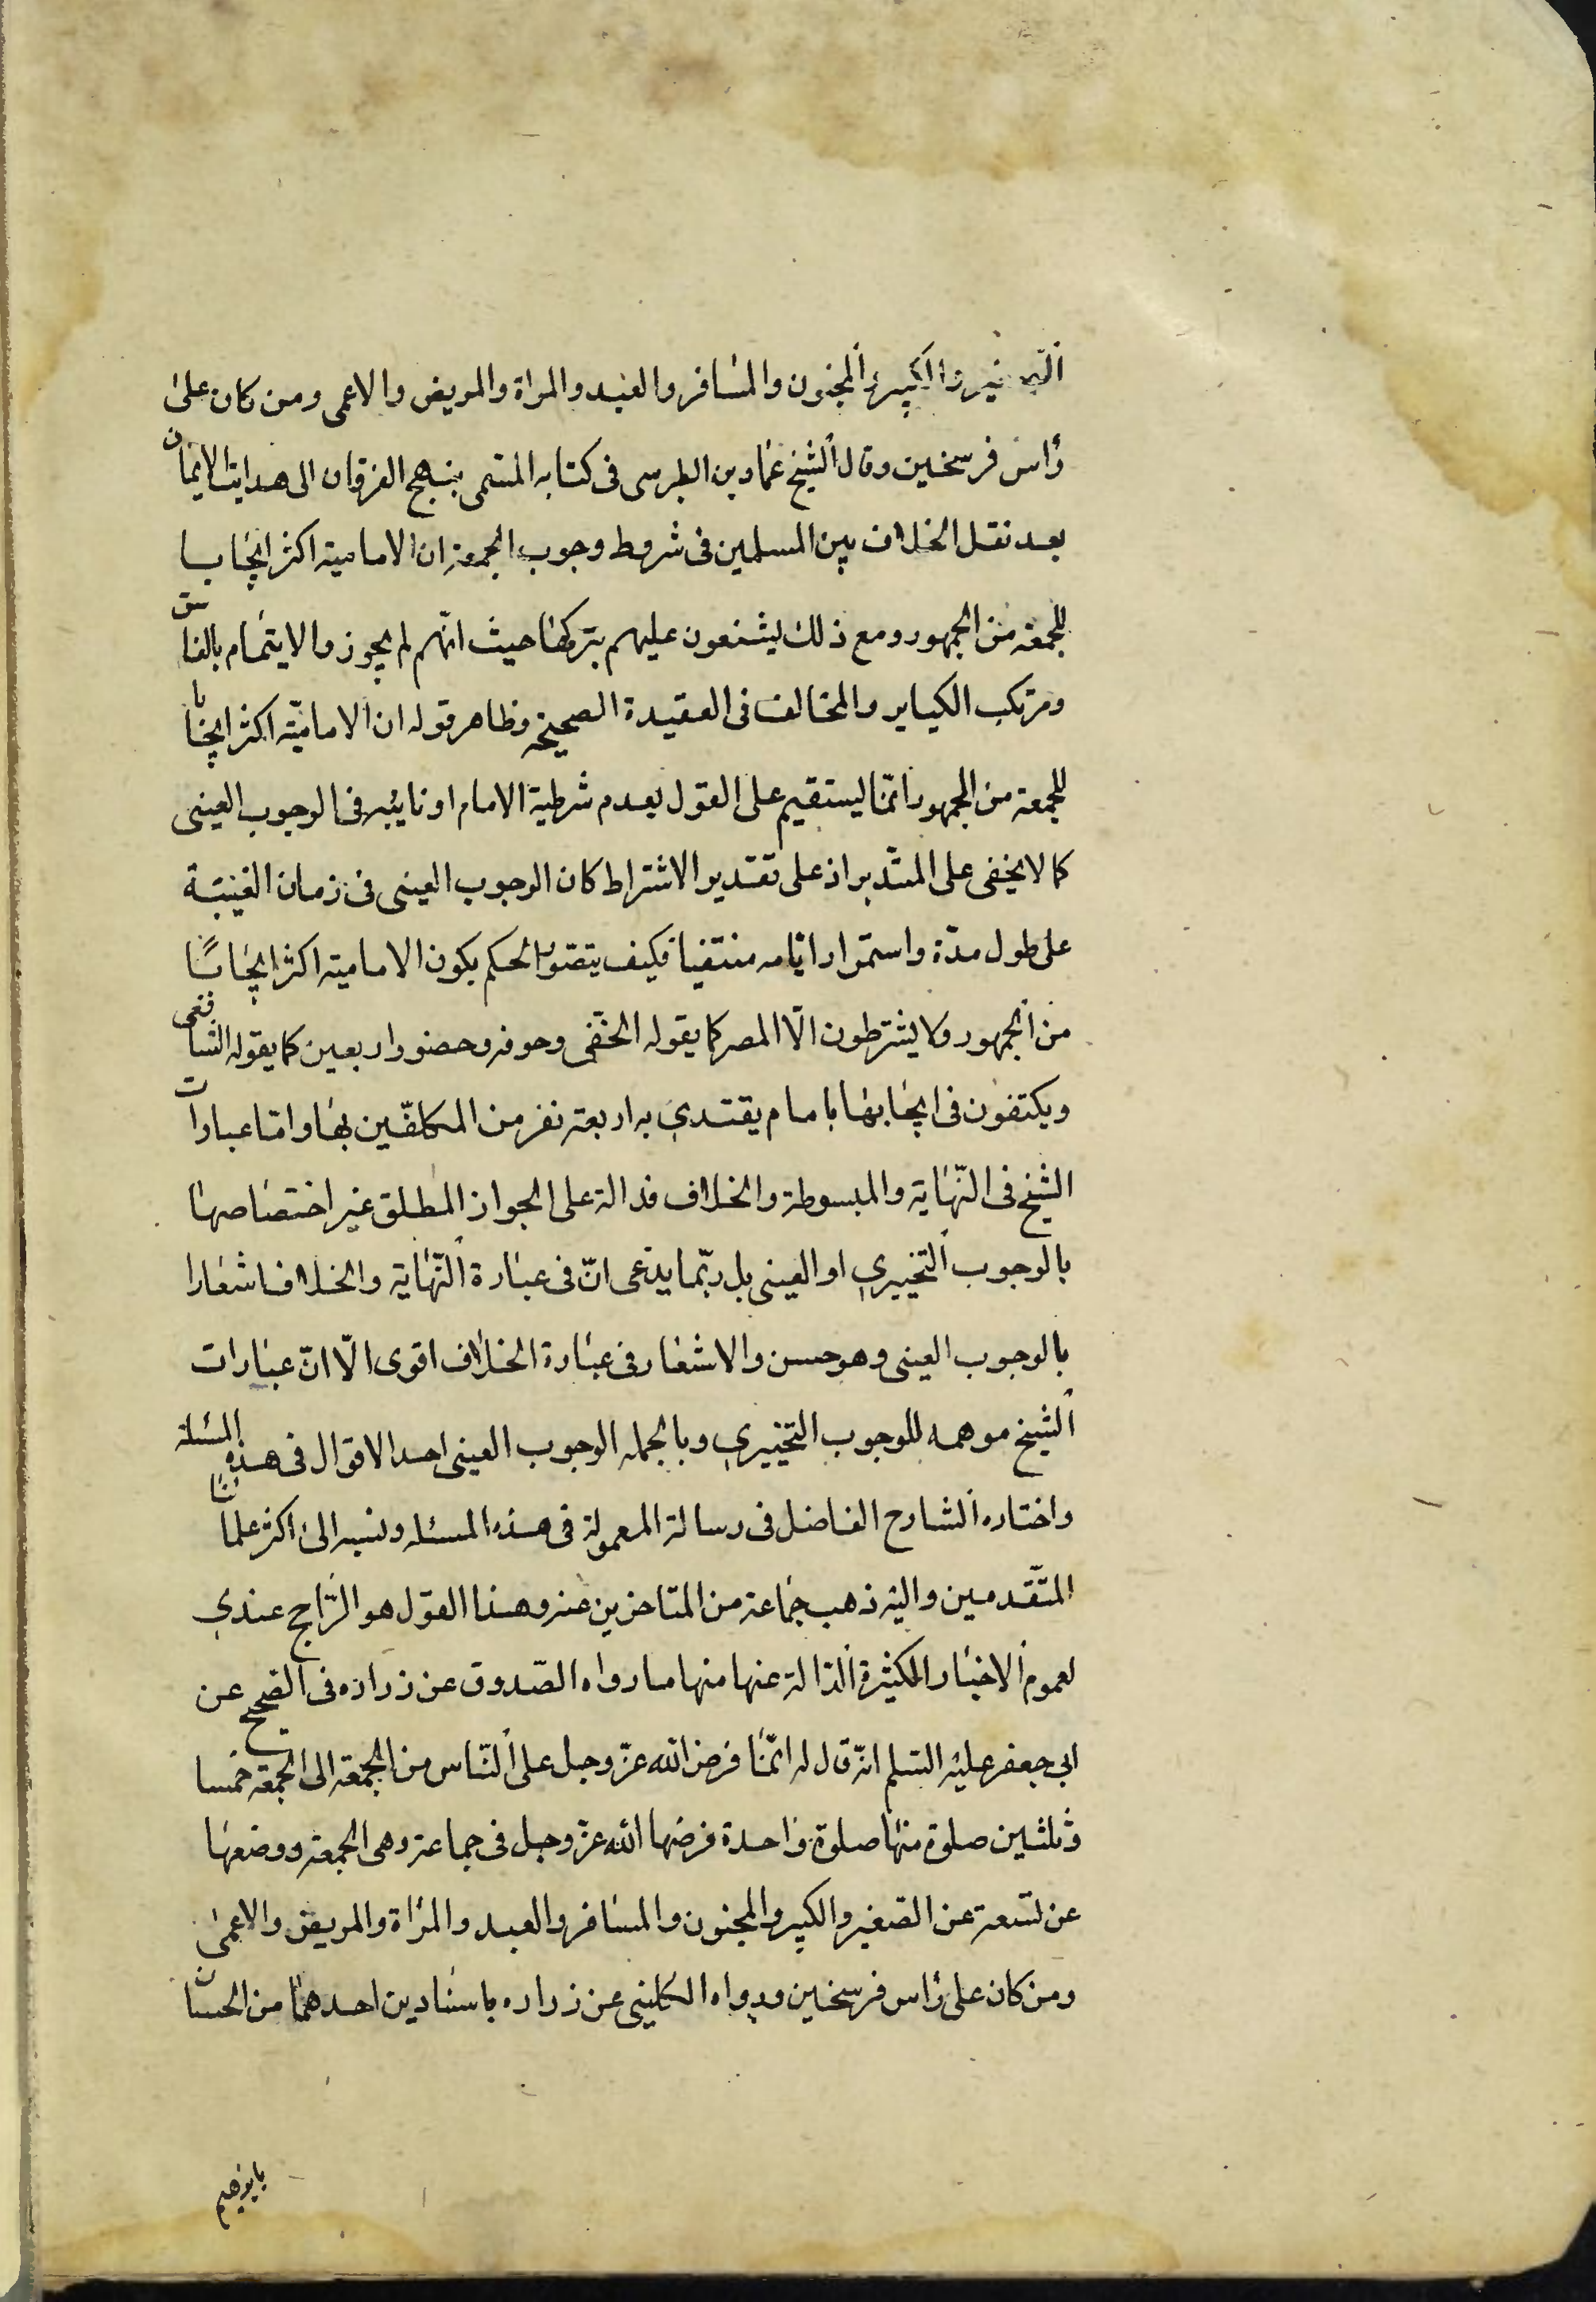 الصغير والكبير والمجنون والمسافر والعبد والمراة والمريض والاعمى ومن كان على
رأس فرسخين وقال الشيخ عماد بن الطبرسى فى كتابه المسمى بنهج الفرقان الى هدايت الايمان
بعد نقل الخلاف بين المسلمين فى شروط وجوب الجمعة ان الامامية اكثر ايجابا
للجمعة من الجمهور ومع ذلك يشنعون عليهم بتركها حيث انهم لم يجوزوا الايتمام بالفاسق
ومرتكب الكباير والمخالف فى العقيدة الصحيحه وظاهر قوله ان الاماميّة اكثر ايجابا
للجمعة من الجمهور انّما يستقيم على القول بعدم شرطية الامام او نايبه فى الوجوب العينى
كما لا يخفى على المتدبر اذ على تقدير الاشتراط كان الوجوب العينى فى زمان الغيبة
على طول مدّة واستمرار ايامه منتفيا فكيف يتصور الحكم بكون الامامية اكثر ايجابًا
من الجمهور ولا يشترطون الّا المصر كما يقوله الحنفى وحوفه وحضور اربعين كما يقوله الشافعى
ويكتفون فى ايجابها بامام يقتدي به اربعة نفر من المكلفّين بها وامّا عبارات
الشيخ فى النّهاية والمبسوطة والخلاف فدالة على الجواز المطلق غير اختصاصها
بالوجوب التخييري او العينى بل ربّما يدّعى انّ فى عبارة النّهاية والخلاف اشعارا
بالوجوب العينى وهو حسن والاشعار فى عبارة الخلاف اقوى الّا انّ عبارات
الشيخ موهمه للوجوب التخييري وبالجمله الوجوب العينى احد الاقوال فى هذه المسئلة
واختاره الشارح الفاضل فى رسالة المعمولة فى هذه المسئله ونسبه الى اكثر علمائنا
المتّقدمين واليه ذهب جماعة من المتاخرين عنه وهذا القول هو الرّاجح عندي
لعموم الاخبار الكثيرة الدّالة عنها منها ما رواه الصّدوق عن زراره فى الصحيح عن
ابى جعفر عليه السلم انّه قال له انّما فرض الله عزّ وجل على النّاس من الجمعة الى الجمعة خمسا
وثلثين صلوة منها صلوة واحدة فرضها الله عزّ وجل فى جماعة وهى الجمعة ووضعها
عن تسعة عن الصّغير والكبير والمجنون والمسافر والعبد والمراة والمريض والاعمى
ومن كان على رأس فرسخين ورواه الكلينى عن زراره باسنادين احدهما من الحسان
بابرهيم